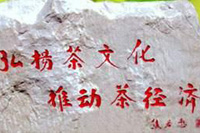 弘杨茶文化
推动茶经济